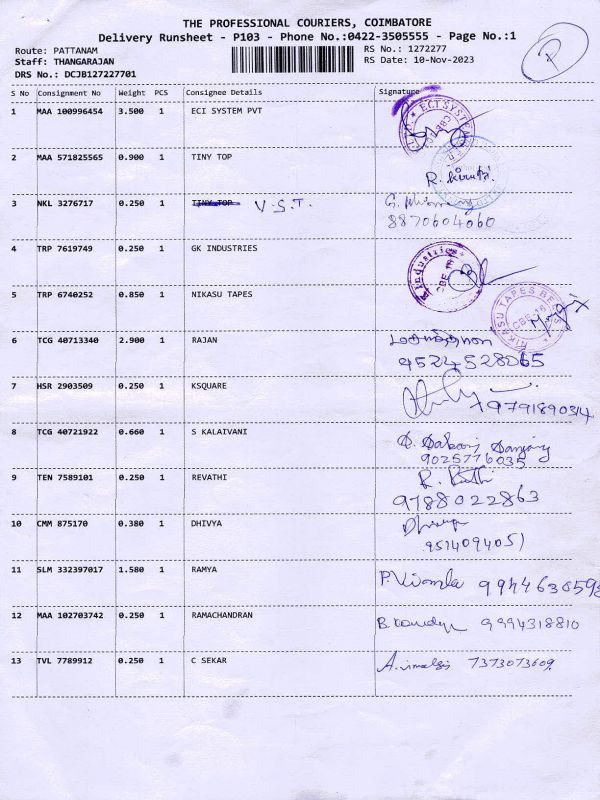 THE PROFESSIONAL COURIERS, COIMBATORE
Delivery Runsheet - P103 - Phone No.:0422-3505555 - Page No.:1
P
Route: PATTANAM RS No.: 1272277
Staff: THANGARAJAN RS Date: 10-Nov-2023
DRS No.: DCJB127227701
S No Consignment No Weight PCS Consignee Details Signature
1 MAA 100996454 3.500 1 ECI SYSTEM PVT ECI SYSTEM
2 MAA 571825565 0.900 1 TINY TOP R.
3 NKL 3276717 0.250 1 TINY TOP V.S.T. G.
8870604060
4 TRP 7619749 0.250 1 GK INDUSTRIES Industries CBE
5 TRP 6740252 0.850 1 NIKASU TAPES NIKASU TAPES CBE-16
6 TCG 40713340 2.900 1 RAJAN
9524528065
7 HSR 2903509 0.250 1 KSQUARE 9791890314
8 TCG 40721922 0.660 1 S KALAIVANI
9025776035
9 TEN 7589101 0.250 1 REVATHI R.
9788022863
10 CMM 875170 0.380 1 DHIVYA Dhivya
9514094051
11 SLM 332397017 1.580 1 RAMYA P. 994463659
12 MAA 102703742 0.250 1 RAMACHANDRAN B. 9994318810
13 TVL 7789912 0.250 1 C SEKAR A. 7373073609